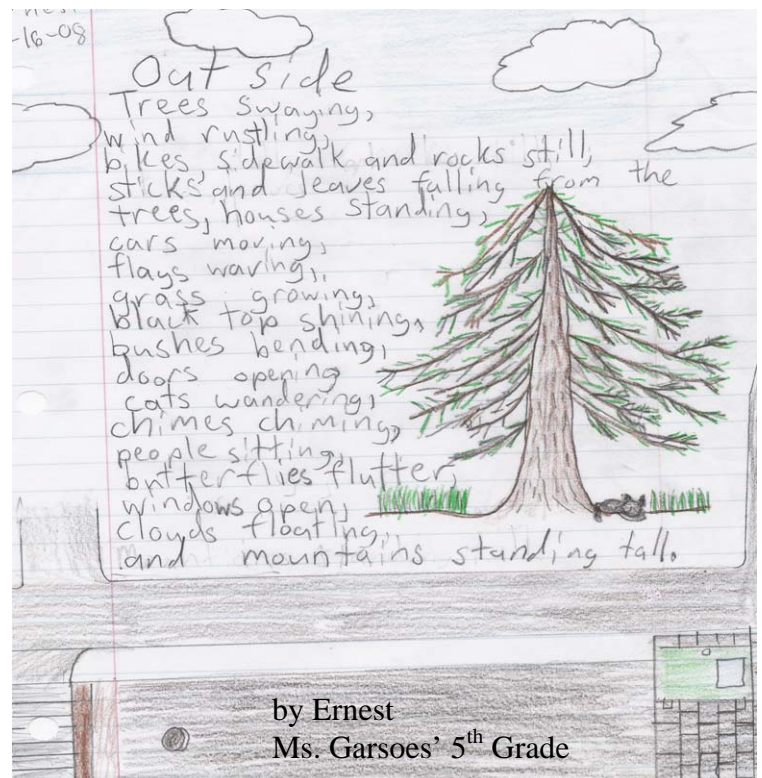 -16-08
Out side
Trees swaying,
wind rustling,
bikes, sidewalk and rocks still,
sticks and leaves falling from the
trees, houses standing,
cars moving,
flags waving,
grass growing,
black top shining,
bushes bending,
doors opening
cats wandering,
chimes chiming,
people sitting,
butterflies flutter,
windows open,
clouds floating,
and mountains standing tall.
by Ernest
Ms. Garsoes’ 5th Grade